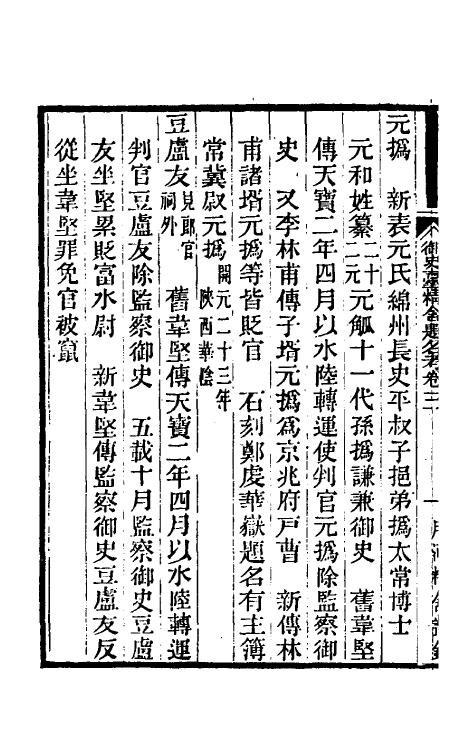 元撝　新表元氏綿州長史平叔子挹弟撝太常博士
元和姓纂二十二元元觚十一代孫撝謙兼御史　舊韋堅
傳天寶二年四月以水陸轉運使判官元撝除監察御
史　又李林甫傳子壻元撝爲京兆府戸曹　新傳林
甫諸壻元撝等皆貶官　石刻鄭虔華嶽題名有主簿
常冀尉元撝開元二十三年陝西華陰
豆盧友見郎官祠外　舊韋堅傳天寶二年四月以水陸轉運
判官豆盧友除監察御史　五載十月監察御史豆盧
友坐堅累貶富水尉　新韋堅傳監察御史豆盧友反
從坐韋堅罪免官被竄
御史臺精舍題名考卷三